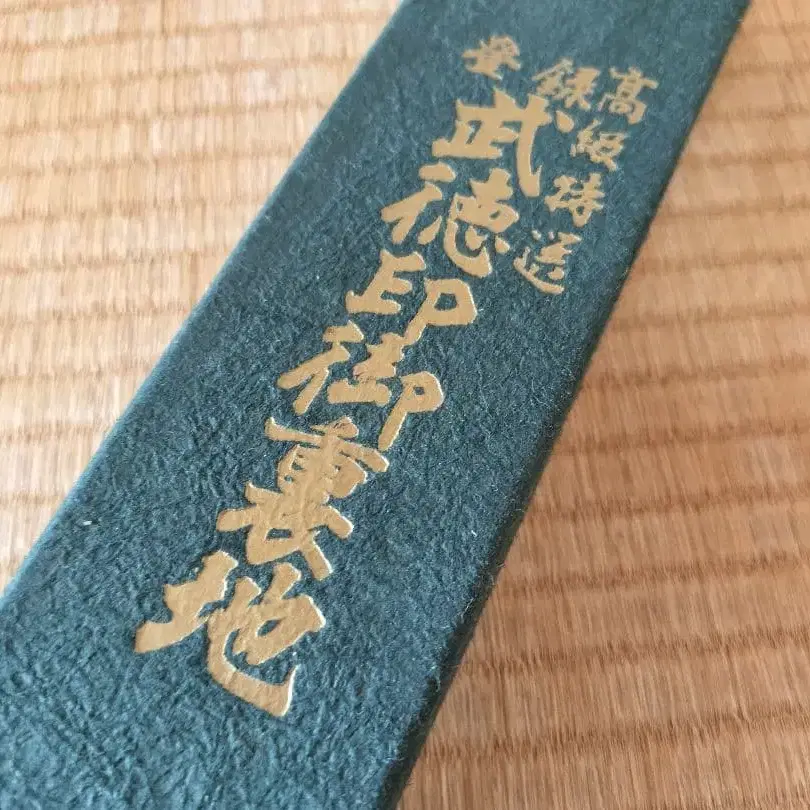 高級特選
登録
武徳印御裏地